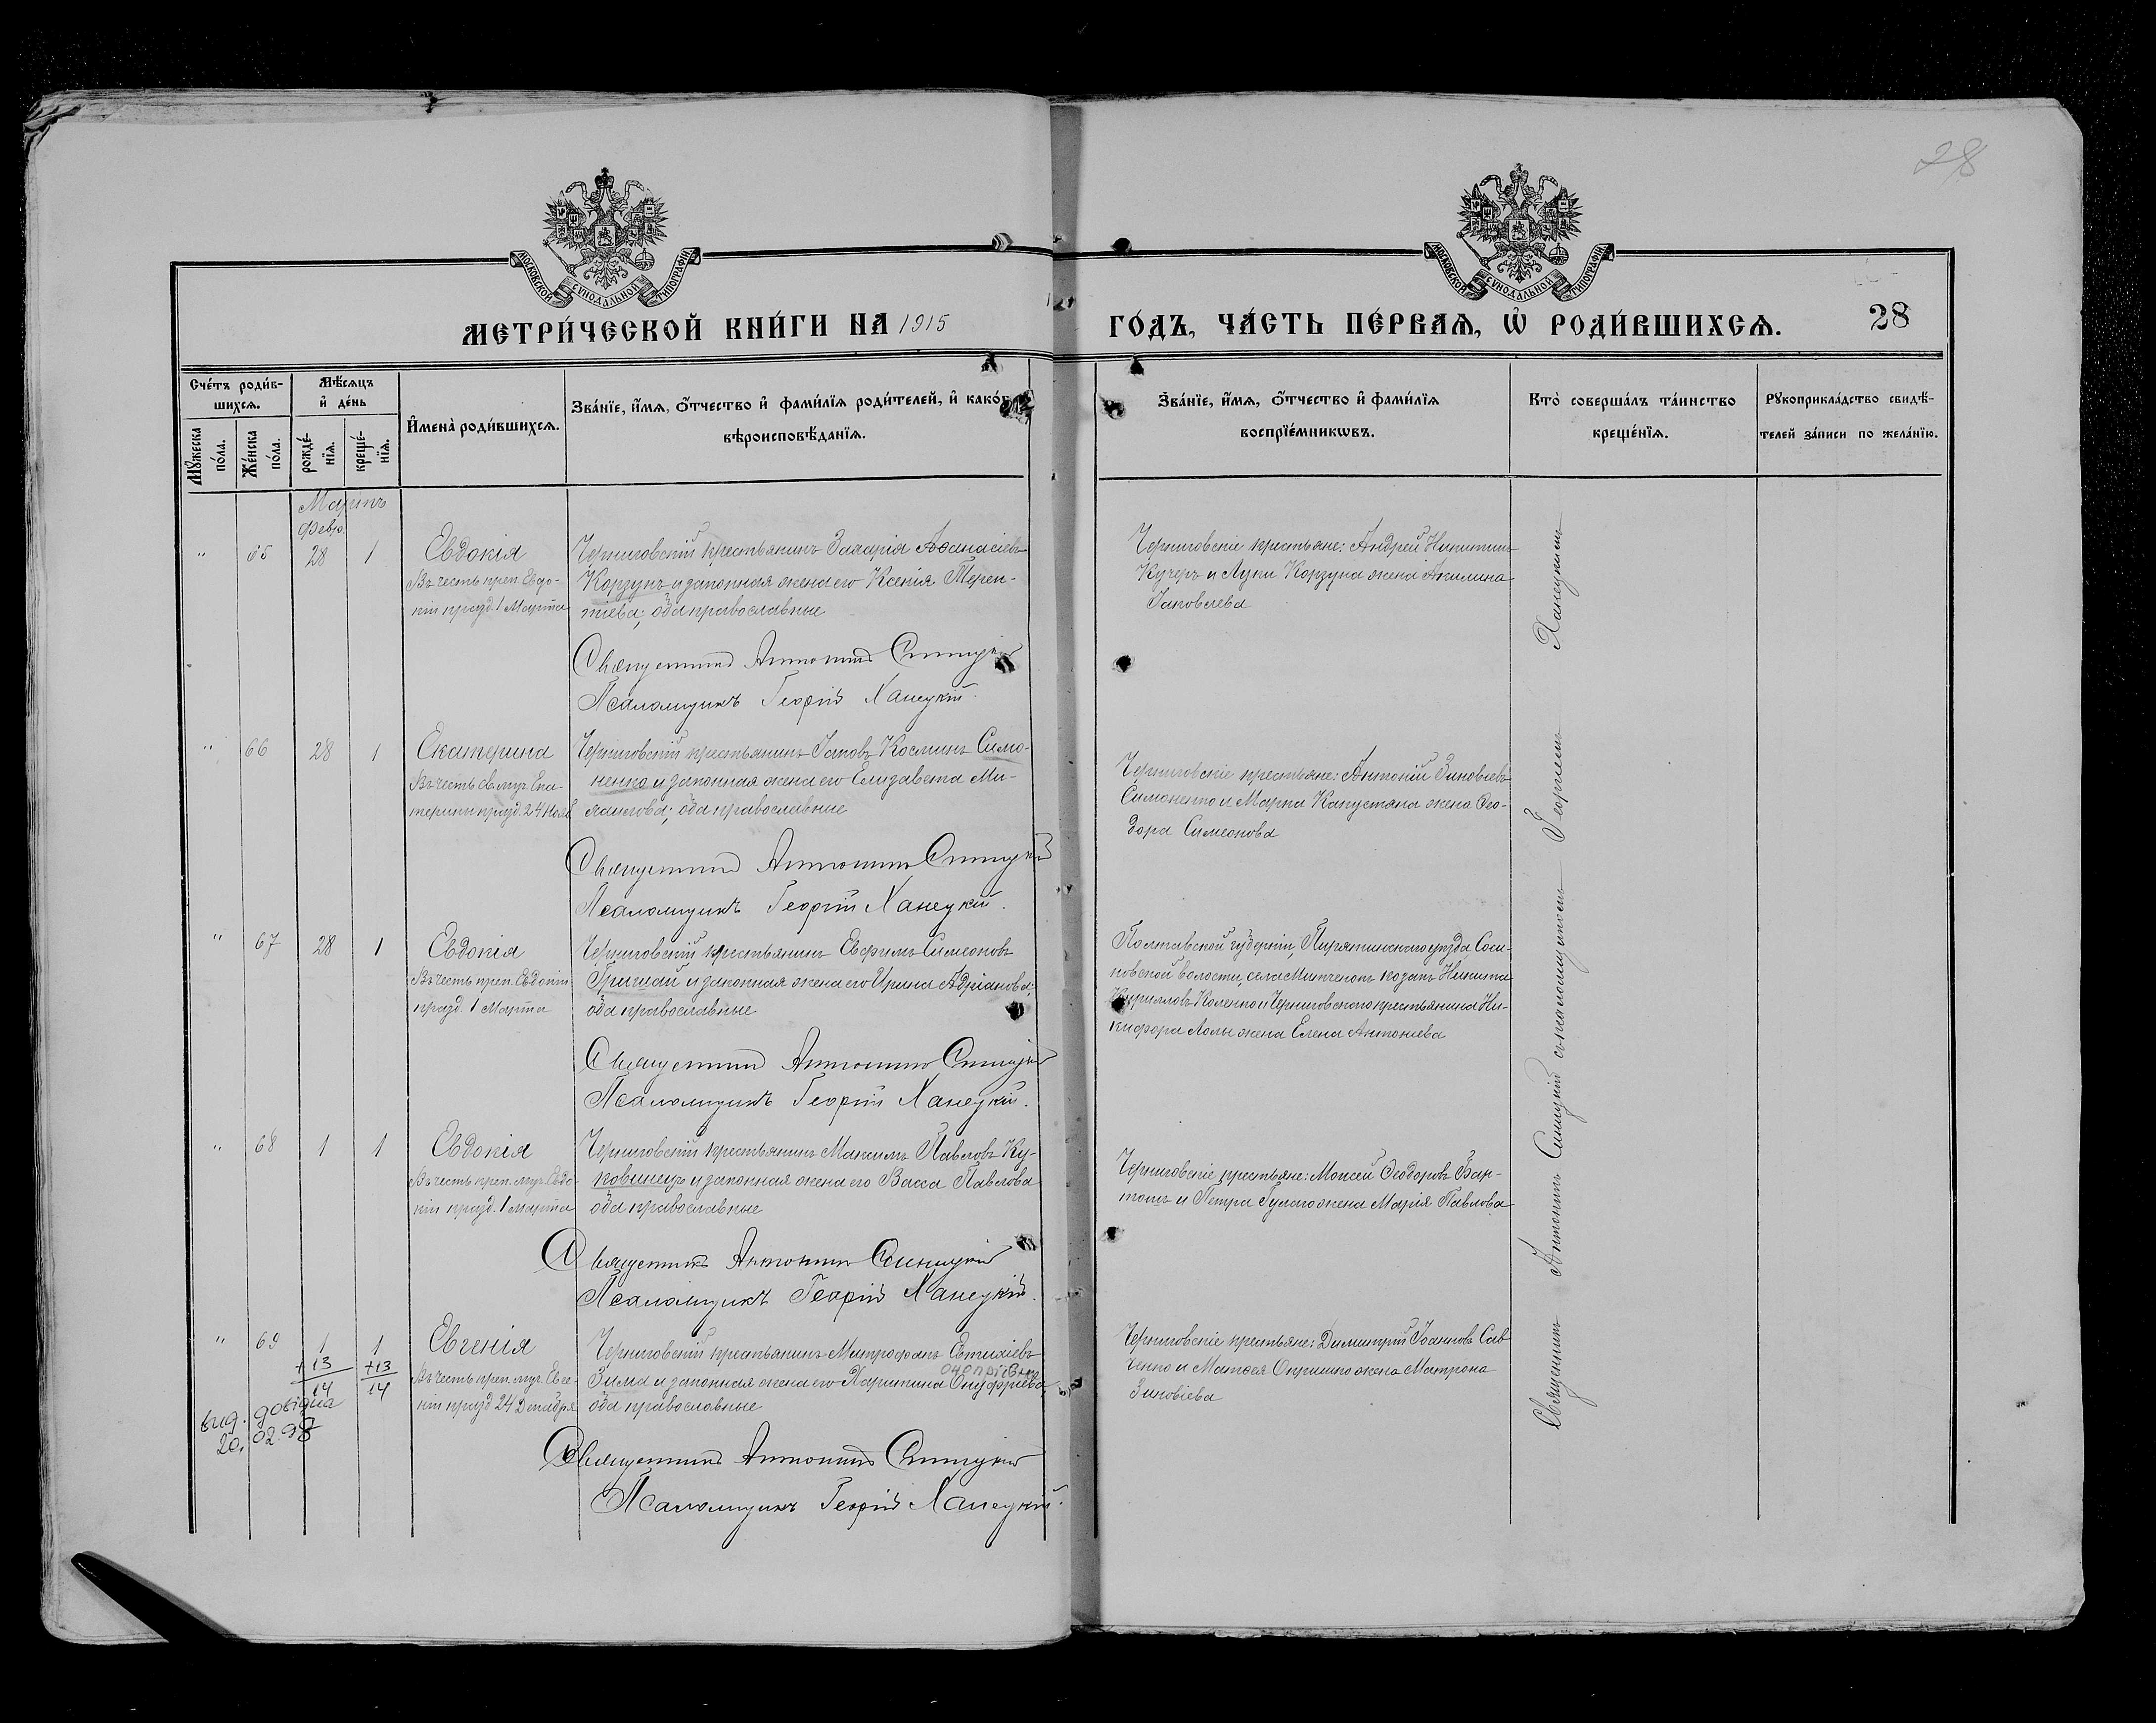 28
МОСКОВСКОЙ СУНОДАЛЬНОЙ ТИПОГРАФІИ
МОСКОВСКОЙ СУНОДАЛЬНОЙ ТИПОГРАФІИ
МЕТРИ́ЧЕСКОЙ КНИ́ГИ НА 1915
ГО́ДЪ, ЧА́СТЬ ПЕ́РВАѦ, Ѡ҆ РОДИ́ВШИХСѦ. 28
Сче́тъ роди́в-
шихсѧ.
Мѣ́сѧцъ
и҆ де́нь
Мꙋ́жеска
по́ла.
Же́нска
по́ла.
рожде́-
нїѧ.
креще́-
нїѧ.
И҆мена̀ роди́вшихсѧ.
Зва́нїе, и҆́мѧ, ѻ҆́тчество и҆ фами́лїѧ роди́телей, и҆ како́гѡ
вѣроисповѣ́данїѧ.
Зва́нїе, и҆́мѧ, ѻ҆́тчество и҆ фами́лїѧ
воспрїе́мникѡвъ.
Кто̀ соверша́лъ та́инство
креще́нїѧ.
Рꙋкоприкла́дство свидѣ́-
телей за́писи по жела́нїю.
Мартъ
Февр.
" 65 28 1 Евдокія
Въ честь преп. Евдо-
кіи празд. 1 Марта
Черниговскій крестьянинъ Захарія Аѳанасіевъ
Корзунъ и законная жена его Ксенія Терен-
тіева, оба православные
Священникъ Антонинъ Синицкій
Псаломщикъ Георгій Ханецкій.
Черниговскіе крестьяне: Андрей Никитинъ
Кучеръ и Луки Корзуна жена Акилина
Іаковлева
" 66 28 1 Екатерина
Въ честь св. муч. Ека-
терины празд. 24 Нояб
Черниговскій крестьянинъ Іаковъ Косминъ Симо-
ненко и законная жена его Елизавета Ми-
хаилова; оба православные
Священникъ Антонинъ Синицкій
Псаломщикъ Георгій Ханецкій.
Черниговскіе крестьяне: Антоній Зиновіевъ
Симоненко и Марѳа Капустяна жена Ѳео-
дора Симеонова
" 67 28 1 Евдокія
Въ честь преп. Евдокіи
празд. 1 Марта
Черниговскій крестьянинъ Евфимъ Симеоновъ
Григшай и законная жена его Ирина Адріанова;
оба православные
Священникъ Антонинъ Синицкій
Псаломщикъ Георгій Ханецкій.
Полтавской губерніи, Пирятинскаго уѣзда,
волости, села козакъ Никита
Кирилловъ Коленко и Черниговскаго крестьянина Ни-
кифора жена Елена Антоніева
" 68 1 1 Евдокія
Въ честь преп. муч. Евдо-
кіи празд. 1 Марта
Черниговскій крестьянинъ Максимъ Павловъ Ку-
ковинецъ и законная жена его Васса Павлова
оба православные
Священникъ Антонинъ Синицкій
Псаломщикъ Георгій Ханецкій.
Черниговскіе крестьяне: Моисей Ѳеодоровъ
и Петра Гулого жена Марія Павлова
" 69 1 1 Евгенія
+13 +13
14 14
Въ честь преп. муч. Евге-
ніи празд 24 Декабря
вид. довідка
20. 02. 98
Черниговскій крестьянинъ Митрофанъ Евтихіевъ
Зима и законная жена его Харитина Онуфріева,
оба православные
Священникъ Антонинъ Синицкій
Псаломщикъ Георгій Ханецкій.
Черниговскіе крестьяне: Димитрій Іоанновъ Сав-
ченко и Матѳея Опришко жена Матрона
Зиновіева
Священникъ Антонинъ Синицкій съ псаломщикомъ Георгіемъ Ханецкимъ